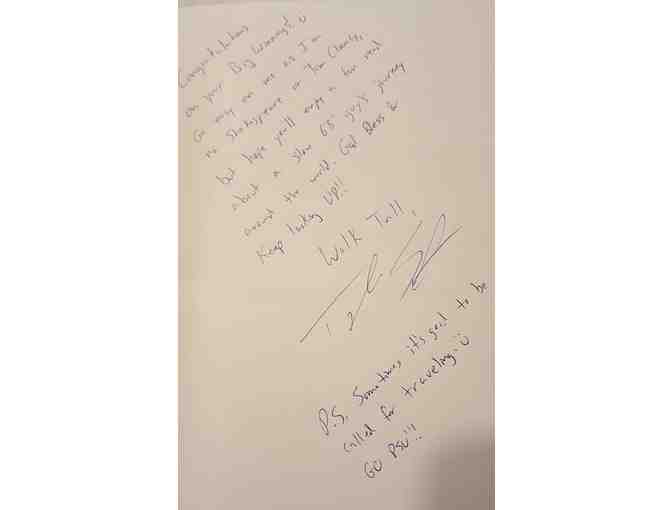 Congratulations
on your Big Winnings!!
Go easy on me as I'm
no Shakespeare or Tom Clancy,
but hope you'll enjoy a fun read
about a slow 6'8" guy's journey
around the world. God Bless &
Keep looking UP!!
Walk Tall,
P.S. Sometimes it's good to be
called for traveling!!
GO PSU!!